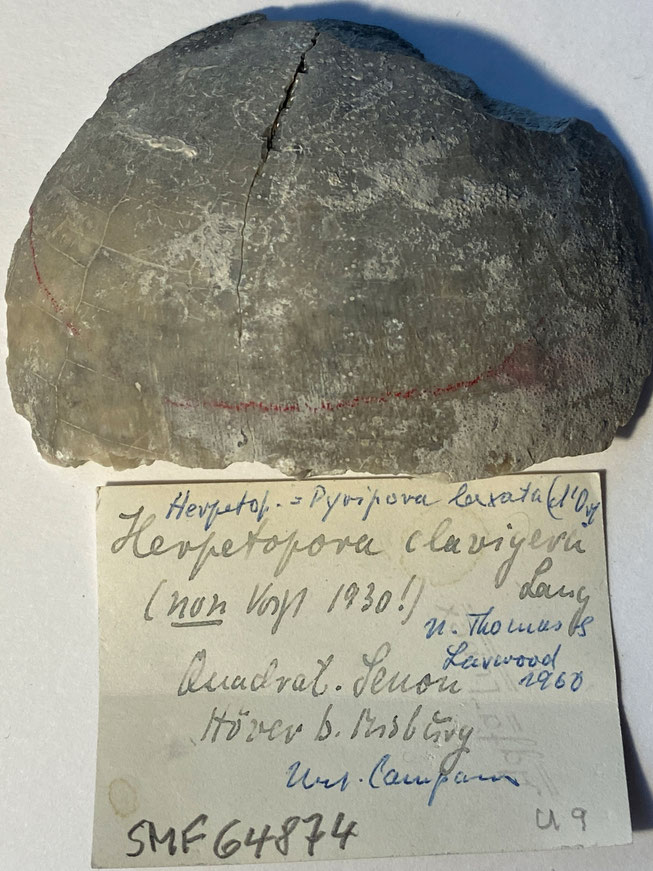 Herpetop. = Pyripora laxata (d'Orb
Herpetopora clavigera
Lang
(non Voigt 1930!)
n. Thomas &
Larwood
1960
Quadrat. Senon
Höver b. Misburg
Unt. Campan
SMF 64874
U 9